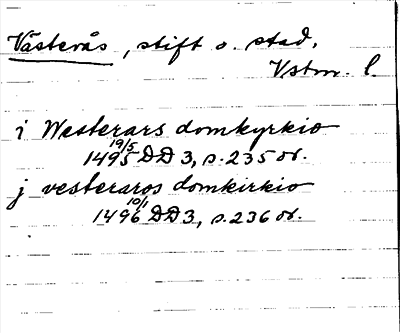 Västerås, stift o. stad,
Vstm. l.
i Westerars domkyrkio
19/5 1495 DD 3, s. 235 or.
j vesteraros domkirkio
10/1 1496 DD 3, s. 236 or.